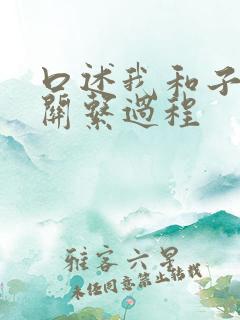 口述我和子
關繫過程
雅客六星
未经同意禁止转载